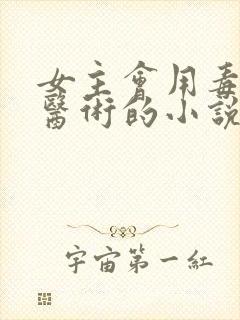 女主會用毒
醫術的小說
宇宙第一紅